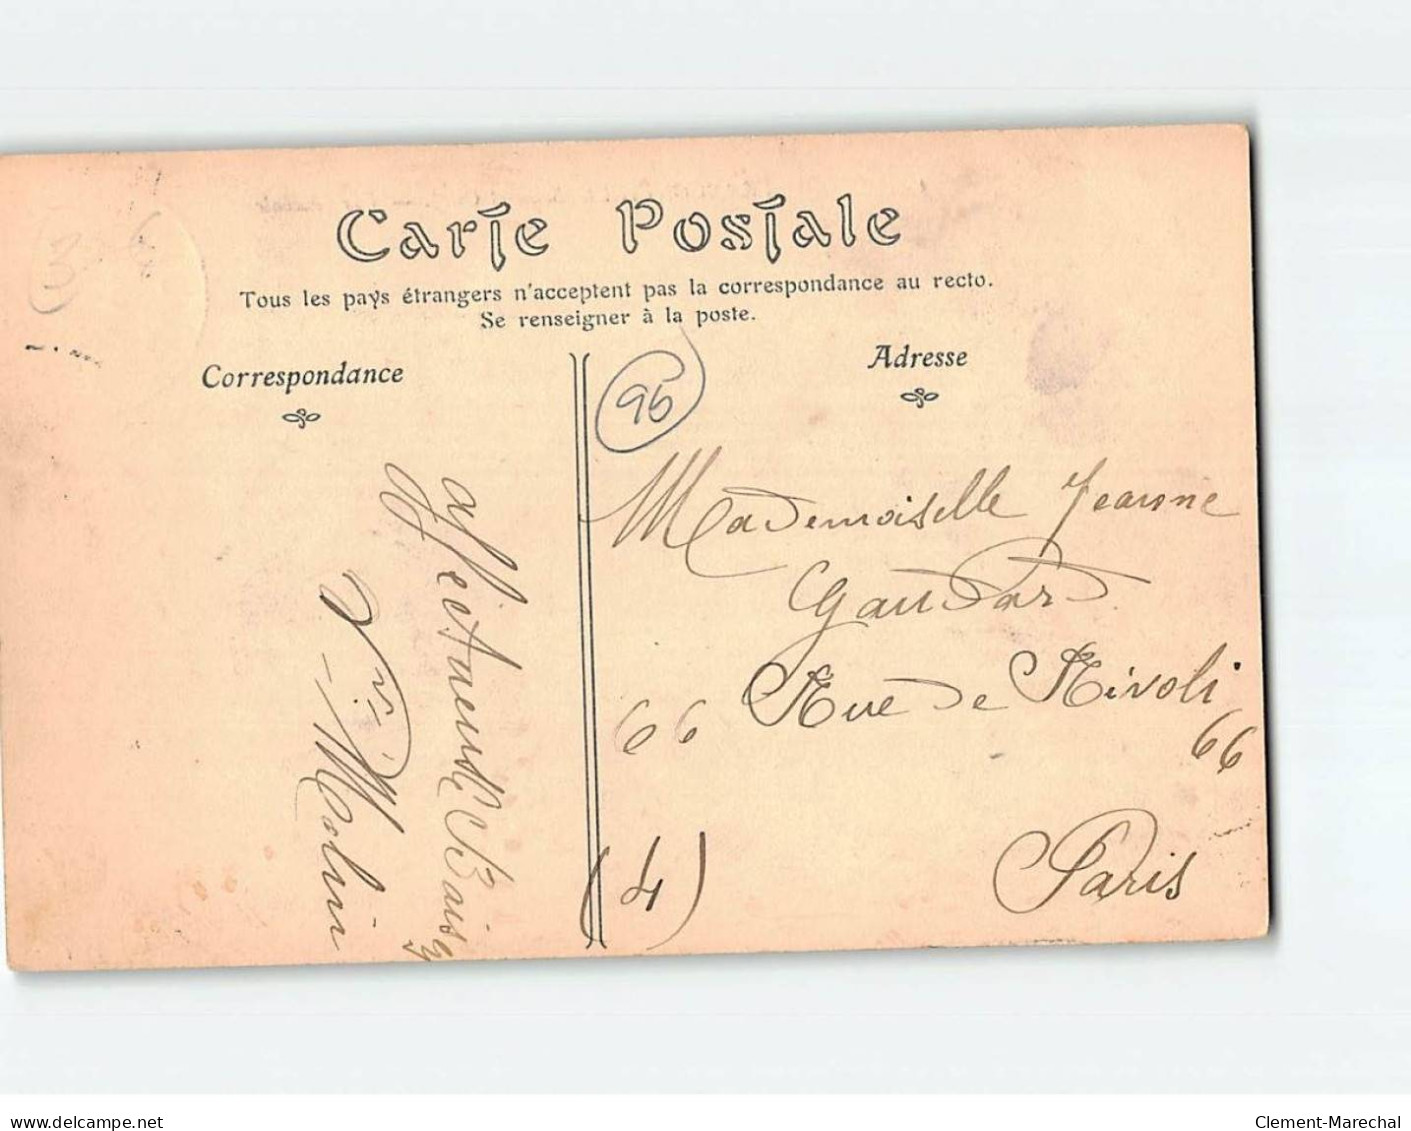 Carte Postale
Tous les pays étrangers n'acceptent pas la correspondance au recto.
Se renseigner à la poste.
Correspondance
Adresse
95
Mademoiselle Jeanne
Gaudard
Rue de Rivoli
66
66
(4)
Paris
affectueux Baisers
delcampe.net
Clement-Marechal